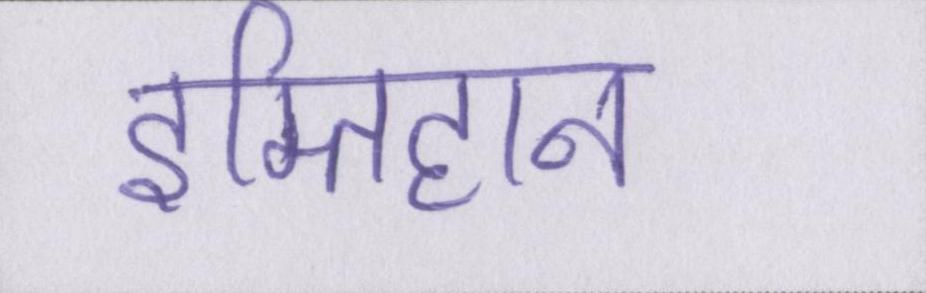 इम्तिहान